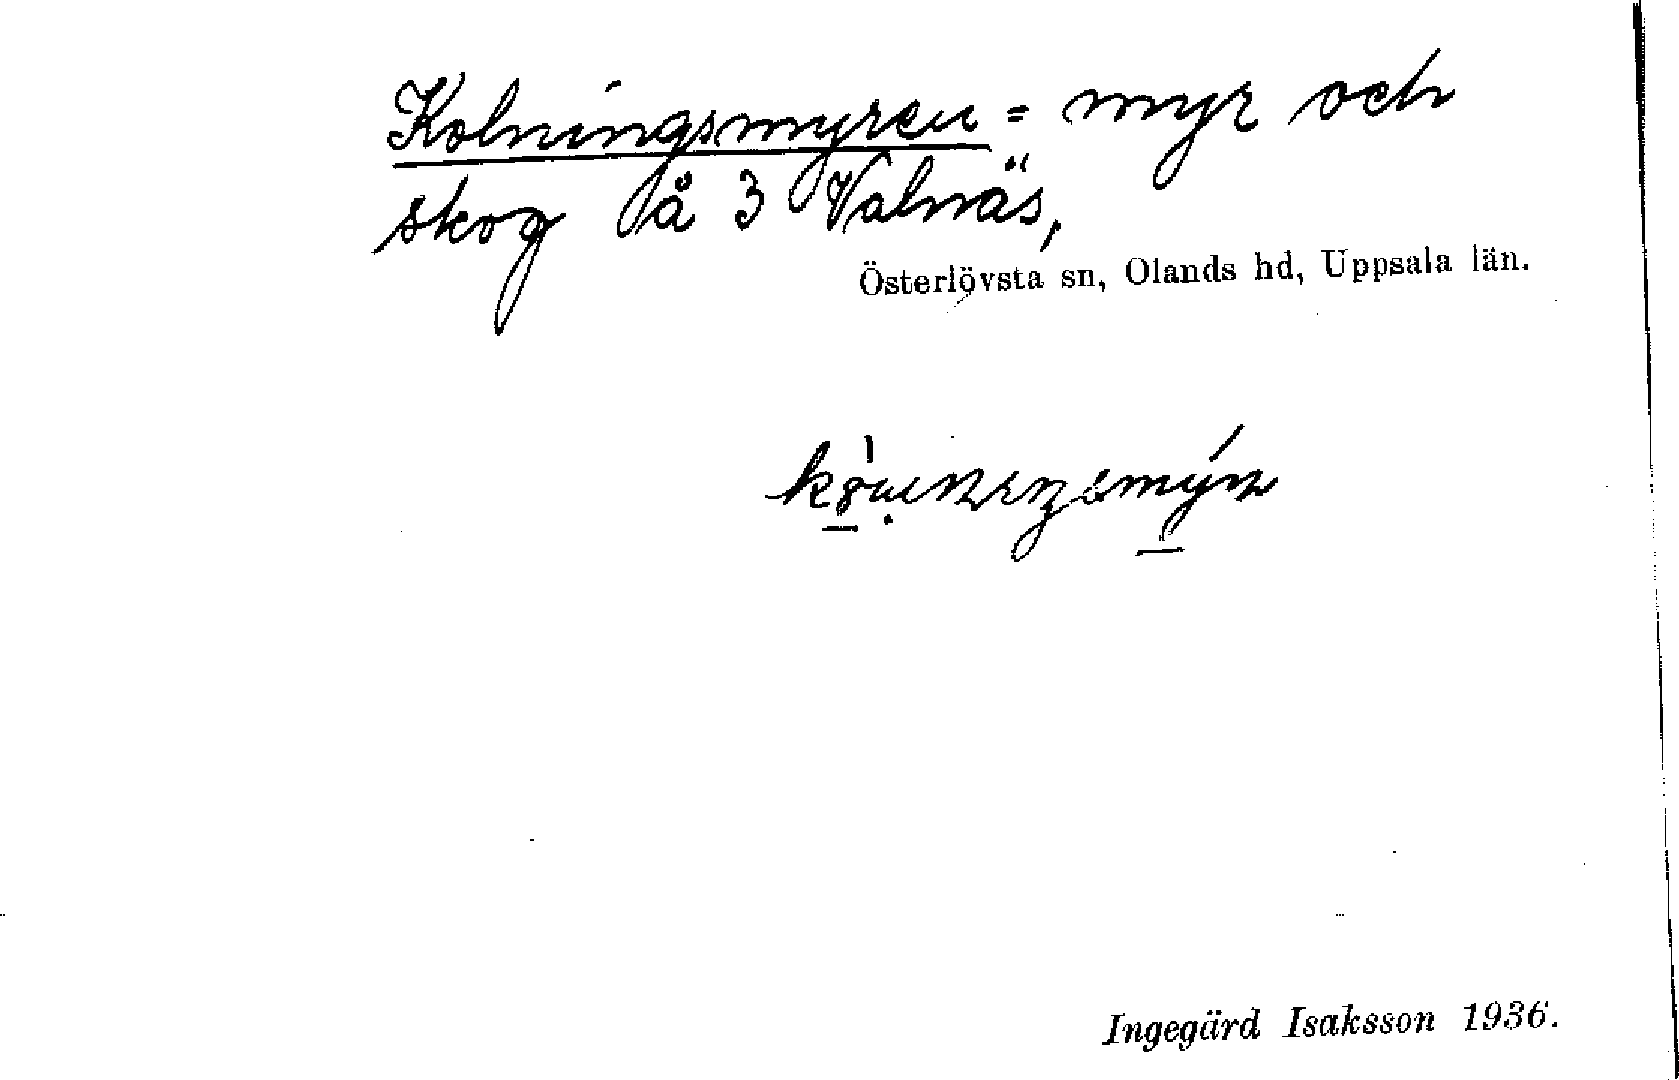 Kolningsmyren = myr och
skog å 3 Valnäs,
Österlövsta sn, Olands hd, Uppsala län.
Ingegärd Isaksson 1936.